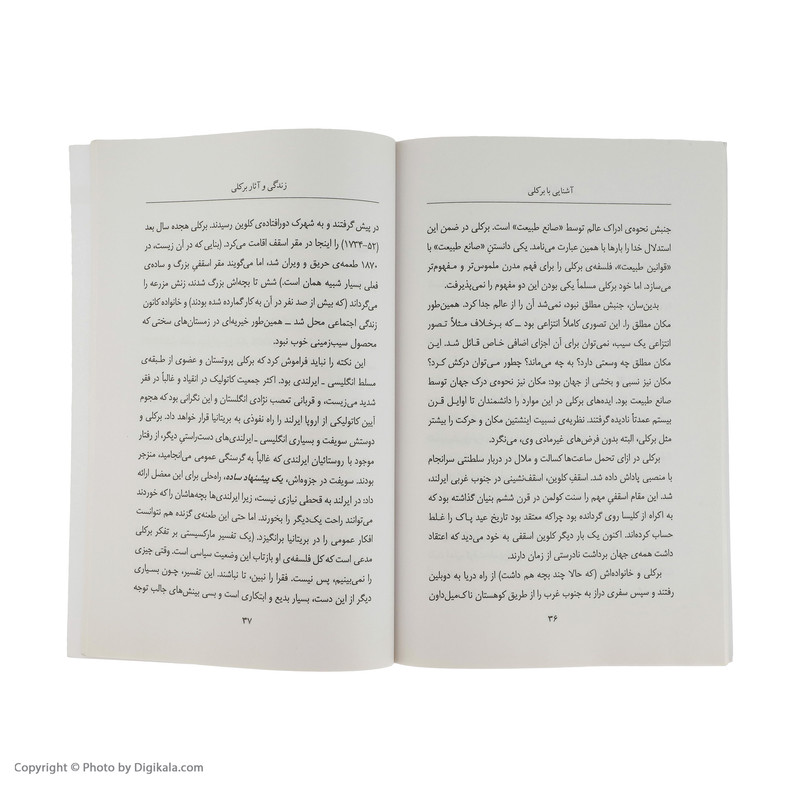 آشنایی با برکلی
جنبش نحوه‌ی ادراک عالم توسط «صانع طبیعت» است. برکلی در ضمن این
استدلال خدا را بارها با همین عبارت می‌نامد. یکی دانستنِ «صانع طبیعت» با
«قوانین طبیعت»، فلسفه‌ی برکلی را برای فهم مدرن ملموس‌تر و مفهوم‌تر
می‌سازد. اما خود برکلی مسلماً یکی بودن این دو مفهوم را نمی‌پذیرفت.
بدین‌سان، جنبش مطلق نبود، نمی‌شد آن را از عالم جدا کرد. همین‌طور
مکان مطلق را. این تصوری کاملاً انتزاعی بود ــ که برخلاف مثلاً تصور
انتزاعی یک سیب، نمی‌توان برای آن اجزای اضافی خاص قائل شد. این
مکان مطلق چه وسعتی دارد؟ به چه می‌ماند؟ چطور می‌توان درکش کرد؟
مکان نیز نسبی و بخشی از جهان بود: مکان نیز نحوه‌ی درک جهان توسط
صانع طبیعت بود. ایده‌های برکلی در این موارد را دانشمندان تا اوایل قرن
بیستم عمدتاً نادیده گرفتند. نظریه‌ی نسبیت اینشتین مکان و حرکت را بیشتر
مثل برکلی، البته بدون فرض‌های غیرمادی وی، می‌نگرد.
برکلی در ازای تحمل ساعت‌ها کسالت و ملال در دربار سلطنتی سرانجام
با منصبی پاداش داده شد. اسقفِ کلوین، اسقف‌نشینی در جنوب غربی ایرلند،
شد. این مقام اسقفی مهم را سنت کولمن در قرن ششم بنیان گذاشته بود که
به اکراه از کلیسا روی گردانده بود چراکه معتقد بود تاریخ عید پاک را غلط
حساب کرده‌اند. اکنون یک بار دیگر کلوین اسقفی به خود می‌دید که اعتقاد
داشت همه‌ی جهان برداشت نادرستی از زمان دارند.
برکلی و خانواده‌اش (که حالا چند بچه هم داشت) از راه دریا به دوبلین
رفتند و سپس سفری دراز به جنوب غرب را از طریق کوهستان ناک‌میل‌داون
۳۶
زندگی و آثار برکلی
در پیش گرفتند و به شهرک دورافتاده‌ی کلوین رسیدند. برکلی هجده سال بعد
(۵۲–۱۷۳۴) را اینجا در مقر اسقف اقامت می‌کرد. (بنایی که در آن زیست، در
۱۸۷۰ طعمه‌ی حریق و ویران شد، اما می‌گویند مقر اسقفیِ بزرگ و ساده‌ی
فعلی بسیار شبیه همان است.) شش تا بچه‌اش بزرگ شدند، زنش مزرعه را
می‌گرداند (که بیش از صد نفر در آن به کار گمارده شده بودند) و خانواده کانون
زندگی اجتماعی محل شد ــ همین‌طور خیریه‌ای در زمستان‌های سختی که
محصول سیب‌زمینی خوب نبود.
این نکته را نباید فراموش کرد که برکلی پروتستان و عضوی از طبقه‌ی
مسلط انگلیسی ـ ایرلندی بود. اکثر جمعیت کاتولیک در انقیاد و غالباً در فقر
شدید می‌زیست، و قربانی تعصب نژادی انگلستان و این نگرانی بود که هجوم
آیین کاتولیکی از اروپا ایرلند را راه نفوذی به بریتانیا قرار خواهد داد. برکلی و
دوستش سویفت و بسیاری انگلیسی ـ ایرلندی‌های دست‌راستیِ دیگر، از رفتار
موجود با روستائیان ایرلندی که غالباً به گرسنگی عمومی می‌انجامید، منزجر
بودند. سویفت در جزوه‌اش، یک پیشنهاد ساده، راه‌حلی برای این معضل ارائه
داد: در ایرلند به قحطی نیازی نیست، زیرا ایرلندی‌ها بچه‌هاشان را که خوردند
می‌توانند راحت یک‌دیگر را بخورند. اما حتی این طعنه‌ی گزنده هم نتوانست
افکار عمومی را در بریتانیا برانگیزد. یک تفسیر مارکسیستی بر تفکر برکلی
مدعی است که کل فلسفه‌ی او بازتاب این وضعیت سیاسی است. وقتی چیزی
را نمی‌بینیم، پس نیست. فقرا را نبین، تا نباشند. این تفسیر، چون بسیاری
دیگر از این دست، بسیار بدیع و ابتکاری است و بسی بینش‌های جالب توجه
۳۷
Copyright © Photo by Digikala.com